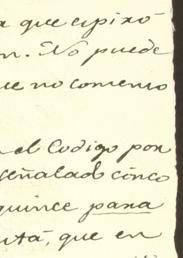 que espiró
No puede
que no comenzo
el Codigo por
señalado cinco
quince para
que en